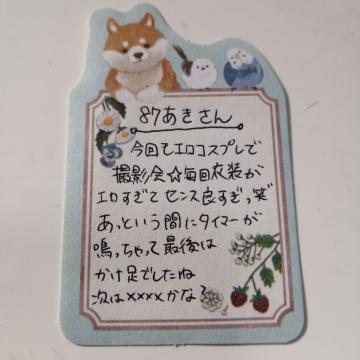 87あきさん
今回もエロコスプレで
撮影会☆毎回衣装が
エロすぎてセンス良すぎっ笑
あっという間にタイマーが
鳴っちゃって最後は
かけ足でしたね
次は××××かな?